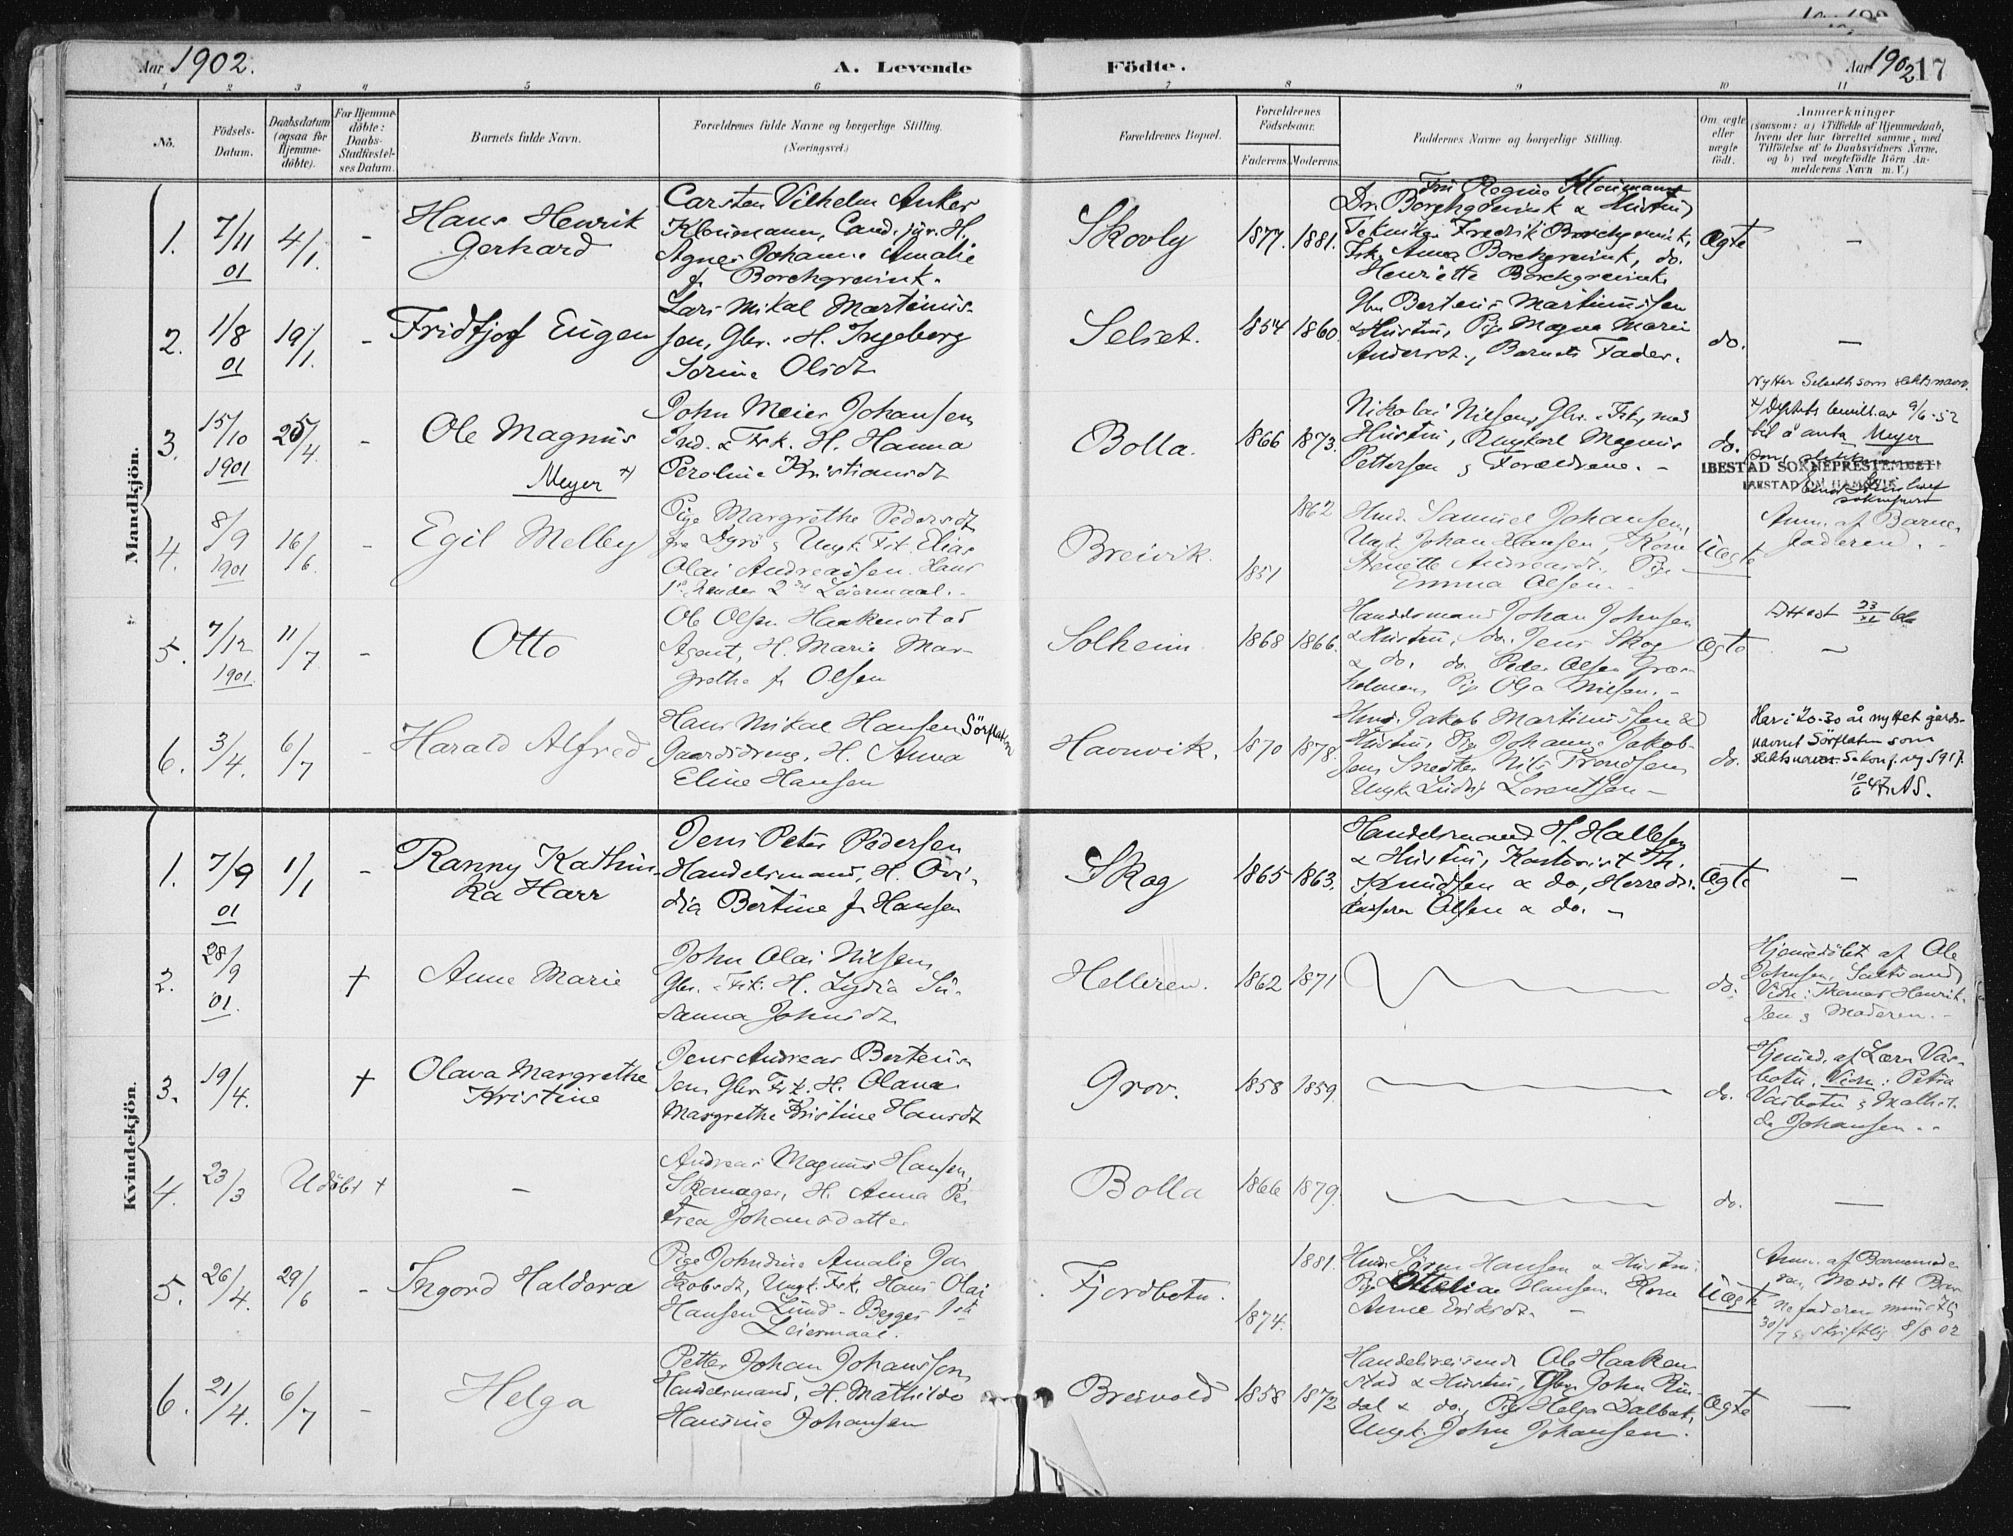 Aar 1902.
A. Levende
Födte.
Aar 1902 17
1 2 3 4 5 6 7 8 9 10 11
No.
Födsels-
Datum.
Daabsdatum
(ogsaa for
Hjemme-
döbte).
For Hjemme-
döbte:
Daabs-
Stadfæstel-
ses Datum.
Barnets fulde Navn.
Forældrenes fulde Navne og borgerlige Stilling.
(Næringsvei.)
Forældrenes Bopæl.
Forældrenes
Födselsaar.
Faderens. Moderens.
Faddernes Navne og borgerlige Stilling.
Om ægte
eller
uægte
födt.
Anmærkninger
(saasom: a) i Tilfælde af Hjemmedaab,
hvem der har forrettet samme, med
Tilföielse af to Daabsvidners Navne,
og b) ved uegtefödte Börn An-
melderens Navn m. V.)
Mandkjön.
1. 7/11 01 4/1. -
Hans Henrik
Gerhard
Carsten Vilhelm Anker
Cand. jur. H.
Agnes Johanne Amalie
f. Borchgrevink.
Skovly 1877. 1881.
Dr. Borchgrevink & Hustru
Fredrik Borchgrevink,
Frk. Anna Borchgrevink, do.
Henriette Borchgrevink.
Ægte -
2. 1/8 01 19/1. -
Fridtjof Eugen
Lars Mikal Martinus-
sen, Gbr. H. Ingeborg
Sorine Olsdt
Selset. 1854 1860.
Gbr Berteus Martinussen
& Hustru, Pige Magna Marie
Andersdt., Barnets Fader.
do. -
3. 15/10 1901 25/4 -
Ole Magnus
Meyer x)
John Meier Johansen
Ind. & Fsk. H. Hanna
Peroline Kristiansdt
Bolla. 1866 1873.
Nikolai Nilsen, Gbr. Fsk. med
Hustru, Ungkarl Magnus
Pettersen & Forældrene. -
do.
Nytter Selseth som slektsnavn.
x) Deptets bevill. av 9/6-52
til å anta Meyer
som
IBESTAD SOKNEPRESTEMBETE
4. 8/9 1901 16/6. -
Egil Melby
Pige Margrethe Pedersdt
fra Dyrö & Ungk. Fsk. Elias
Olai Andreassen. Hans
1ste hendes 2det Leiermaal. -
Breivik. 1851 1862
Hmd. Samuel Johansen,
Ungk. Johan Hansen, Kone
Andreasdt., Pige
Emma Olsen. -
Uægte
Anm. af Barne-
faderen. -
5. 7/12 1901. 11/7 -
Otto
Ole Olsen Haakenstad
Agent, H. Marie Mar-
grethe f. Olsen
Solheim 1868 1866.
Handelsmand Johan Johnsen
& Hustru, do. Jens Skog
& do. do. Peder Olsen Græs-
holmen, Pige Olga Nilsen. -
Ægte
Attest 23/11
-
6. 3/4. 6/7 -
Harald Alfred
Hans Mikal Hansen Sörflaten
Gaardsdreng, H. Anna
Eline Hansen
Havnvik. 1870 1878.
Hmd. Jakob Martinussen &
Hustru, Pige Johanne Jakob-
sen, Snedker Nils Trondsen
Ungk. Ludvig Lorentsen -
do.
Har i 20-30 år nyttet gårds-
navnet Sörflaten som
slektsnavn.
10/6 47. A.S.
Kvindekjön.
1. 7/9 01 1/1 -
Ranny Kathin-
ka Harr
Jens Peter Pedersen
Handelsmand, H. Ovi-
dia Bertine f. Hansen
Skog 1865 1863.
Handelsmand H. Hallesen
& Hustru, Kontorist Th.
Knudsen & do, Herreds-
kasserer Olsen & do. -
Ægte -
2. 28/9 01. +
Anne Marie
John Olai Nilsen,
Gbr. Fsk. H. Lydia Su-
sanna Johnsdt.
Helleren. 1862 1871
do.
Hjemmedöbt af Ole
Johnsen, Saltvand
Vidn: Thomas Henrik-
sen & Moderen. -
3. 19/4. +
Olava Margrethe
Kristine
Jens Andreas Berteus-
sen, Gbr Fsk. H. Olava
Margrethe Kristine Hansdt
Grov. 1858 1859.
do.
Hjemmed. af Lærer Vas-
botn. Vidn: Petra
Vasbotn & Mathil-
de Johansen. -
4. 23/3 Udöbt + -
Andreas Magnus Hansen,
Skomager, H. Anna Pe-
trea Johansdatter
Bolla 1866 1879.
do. -
5. 26/4. 29/6 -
Ingord Haldora
Pige Johndine Amalie Ja-
kobsdt, Ungk. Fsk. Hans Olai
Hansen Lund - Begges 1ste
Leiermaal.
Fjordbotn. 1874. 1881.
Hmd. Hansen & Hustru
Pige Ottelia Hansen, Kone
Anne Eriksdt. -
Uægte
Anm. af Barnemode-
ren,
30/7 & skriftlig 8/8 02
6. 21/4. 6/7 -
Helga
Petter Johan Johansson
Handelsmand, H. Mathilde
Hansine Johansen
Breivold 1858 1872
Handelsreisende Ole Haaken-
stad & Hustru, Gbr. John Rin-
dal & do., Pige Helga Dalbak,
Ungk. John Johansen.
Ægte -